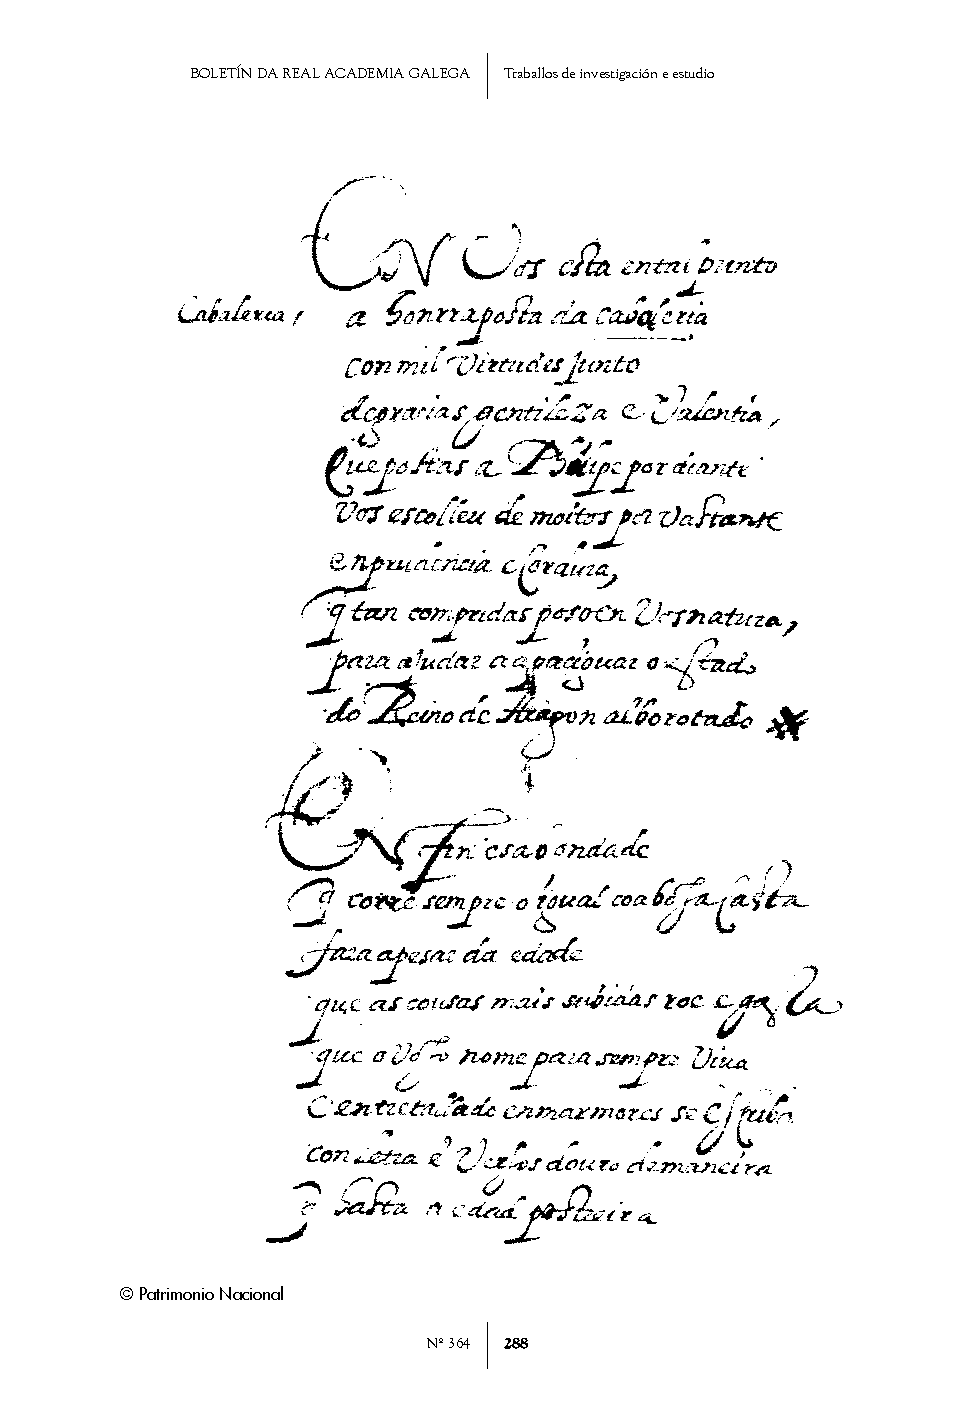 BOLETÍN DA REAL ACADEMIA GALEGA
Traballos de investigación e estudio
EN Vos esta entai punto
Cabaleria,
a honrraposta da cavaleria
con mil Virtudes junto
de gracias gentileza e Valentia,
Que postas a Phelipe por diante
Vos escolleu de moitos por vastante
en prudencia e cordura,
q tan compridas poso en Vos natura,
para ajudar a apaciguar o estado
do Reino de Aragon alborotado
EN fin esa bondade
q corre sempre o igual coa vosa casta
fara apesar da edade
que as cousas mais subidas roe e gasta
que o voso nome para sempre Viva
e entretallado en marmores se escriba
con letra e Versos douro de maneira
q hasta a edad posteira
© Patrimonio Nacional
Nº 364
288